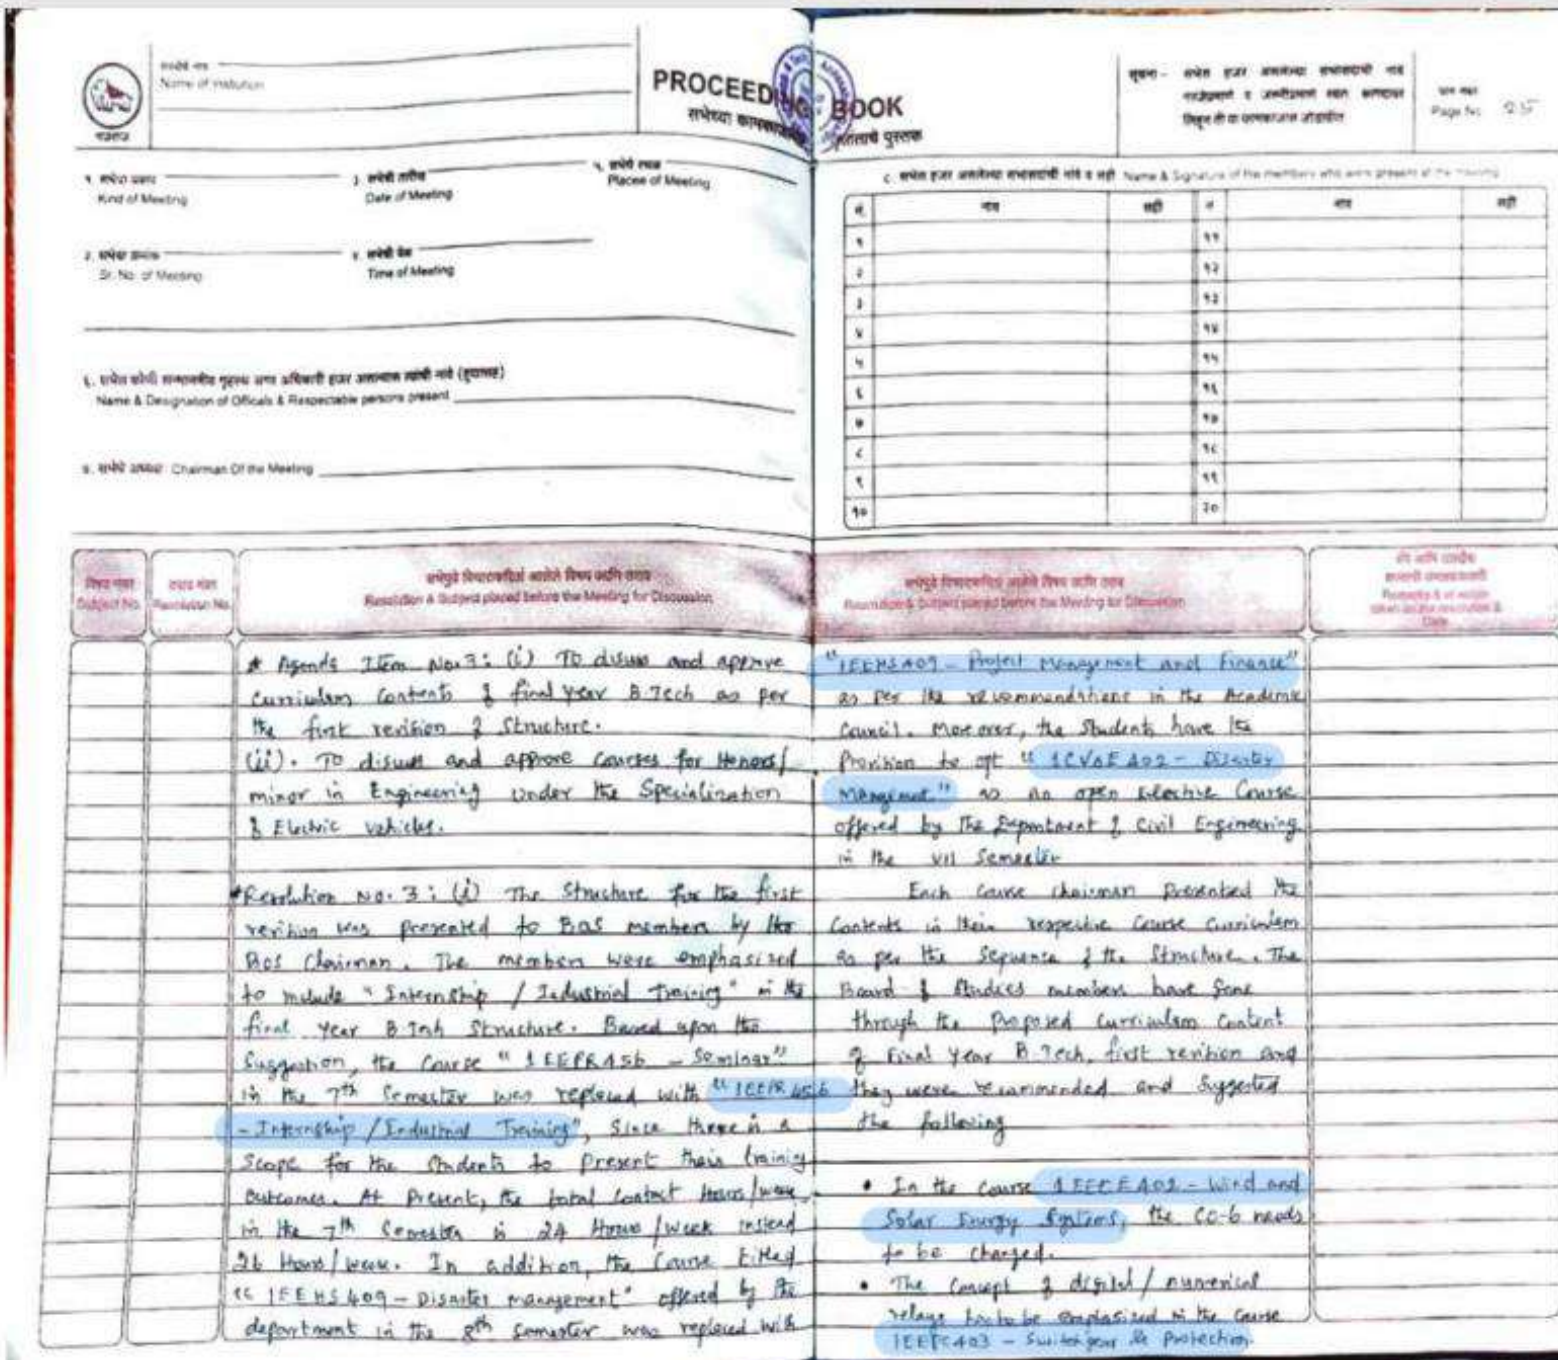 Name of Institution
PROCEEDING BOOK
सभेच्या कामकाजाचे
वृत्तांताचे पुस्तक
सूचना - सभेस हजर असलेल्या सभासदांची नावे
Page No. 25
गजराज
Kind of Meeting
३. सभेची तारीख
Date of Meeting
५. सभेचे स्थळ
Placee of Meeting
Sr. No. of Meeting
४. सभेची वेळ
Time of Meeting
८. सभेस हजर असलेल्या सभासदांची नांवे व सही Name & Signature of the members who were present at the meeting
नं. नाव सही नं नाव सही
१ ११
२ १२
३ १३
४ १४
५ १५
६ १६
७ १७
८ १८
९ १९
१० २०
Name & Designation of Officals & Respectable persons present
Chairman Of the Meeting
विषय नंबर
Subject No.
ठराव नंबर
Resolution No.
सभेपुढे विचाराकरिता आलेले विषय आणि ठराव
Resolution & Subject placed before the Meeting for Discussion
* Agenda Item No.3: (i) To discuss and approve
Curriculum Contents of final year B.Tech as per
the first revision of Structure.
(ii). To discuss and approve Courses for Honors/
minor in Engineering under the Specialization
of Electric vehicles.
*Resolution No. 3: (i) The Structure for the first
revision was presented to BoS members by the
BoS Chairman. The members were emphasized
to include "Internship / Industrial Training" in the
final year B.Tech Structure. Based upon the
Suggestion, the Course "1EEPR456 - Seminar"
in the 7th Semester was replaced with "1EEPR456
- Internship / Industrial Training", Since there is a
Scope for the Students to Present their training
outcomes. At Present, the total Contact Hours/week
in the 7th Semester is 24 Hours/week instead
26 Hours/week. In addition, the Course titled
"1EEHS409 - Disaster management" offered by the
department in the 8th Semester was replaced with
सभेपुढे विचाराकरिता आलेले विषय आणि ठराव
Resolution & Subject placed before the Meeting for Discussion
"1EEHS409 - Project Management and Finance"
as per the recommendations in the Academic
Council. Moreover, the Students have the
Provision to opt "1CVOE402 - Disaster
Management" as an open Elective Course
offered by The Department of Civil Engineering
in the VII Semester
Each Course Chairman Presented the
Contents in their respective Course Curriculum
as per the Sequence of the Structure. The
Board of Studies members have gone
through the Proposed Curriculum Content
of Final Year B.Tech, first revision and
they were recommended and Suggested
the following
• In the Course 1EEPE402 - Wind and
Solar Energy Systems, the CO-6 needs
to be changed.
• The Concept of digital / numerical
relays has to be emphasized in the Course
1EEPC403 - Switchgear & Protection.